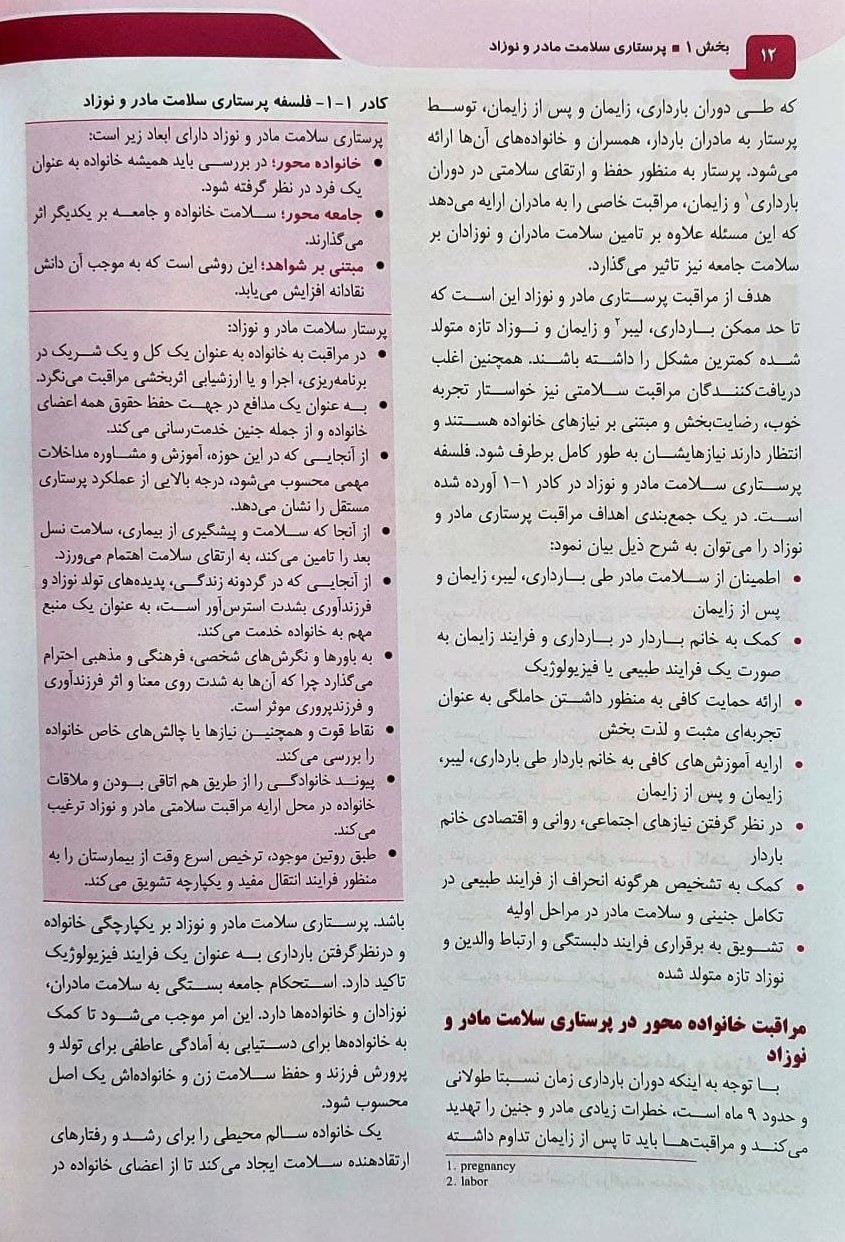 ۱۲
بخش ۱ ■ پرستاری سلامت مادر و نوزاد
که طی دوران بارداری، زایمان و پس از زایمان، توسط
پرستار به مادران باردار، همسران و خانواده‌های آن‌ها ارائه
می‌شود. پرستار به منظور حفظ و ارتقای سلامتی در دوران
بارداری۱ و زایمان، مراقبت خاصی را به مادران ارایه می‌دهد
که این مسئله علاوه بر تامین سلامت مادران و نوزادان بر
سلامت جامعه نیز تاثیر می‌گذارد.
هدف از مراقبت پرستاری مادر و نوزاد این است که
تا حد ممکن بارداری، لیبر۲ و زایمان و نوزاد تازه متولد
شده کمترین مشکل را داشته باشند. همچنین اغلب
دریافت‌کنندگان مراقبت سلامتی نیز خواستار تجربه
خوب، رضایت‌بخش و مبتنی بر نیازهای خانواده هستند و
انتظار دارند نیازهایشان به طور کامل برطرف شود. فلسفه
پرستاری سلامت مادر و نوزاد در کادر ۱-۱ آورده شده
است. در یک جمع‌بندی اهداف مراقبت پرستاری مادر و
نوزاد را می‌توان به شرح ذیل بیان نمود:
• اطمینان از سلامت مادر طی بارداری، لیبر، زایمان و
پس از زایمان
• کمک به خانم باردار در بارداری و فرایند زایمان به
صورت یک فرایند طبیعی یا فیزیولوژیک
• ارائه حمایت کافی به منظور داشتن حاملگی به عنوان
تجربه‌ای مثبت و لذت بخش
• ارایه آموزش‌های کافی به خانم باردار طی بارداری، لیبر،
زایمان و پس از زایمان
• در نظر گرفتن نیازهای اجتماعی، روانی و اقتصادی خانم
باردار
• کمک به تشخیص هرگونه انحراف از فرایند طبیعی در
تکامل جنینی و سلامت مادر در مراحل اولیه
• تشویق به برقراری فرایند دلبستگی و ارتباط والدین و
نوزاد تازه متولد شده
مراقبت خانواده محور در پرستاری سلامت مادر و
نوزاد
با توجه به اینکه دوران بارداری زمان نسبتا طولانی
و حدود ۹ ماه است، خطرات زیادی مادر و جنین را تهدید
می‌کند و مراقبت‌ها باید تا پس از زایمان تداوم داشته
1. pregnancy
2. labor
کادر ۱-۱- فلسفه پرستاری سلامت مادر و نوزاد
پرستاری سلامت مادر و نوزاد دارای ابعاد زیر است:
• خانواده محور؛ در بررسی باید همیشه خانواده به عنوان
یک فرد در نظر گرفته شود.
• جامعه محور؛ سلامت خانواده و جامعه بر یکدیگر اثر
می‌گذارند.
• مبتنی بر شواهد؛ این روشی است که به موجب آن دانش
نقادانه افزایش می‌یابد.
پرستار سلامت مادر و نوزاد:
• در مراقبت به خانواده به عنوان یک کل و یک شریک در
برنامه‌ریزی، اجرا و یا ارزشیابی اثربخشی مراقبت می‌نگرد.
• به عنوان یک مدافع در جهت حفظ حقوق همه اعضای
خانواده و از جمله جنین خدمت‌رسانی می‌کند.
• از آنجایی که در این حوزه، آموزش و مشاوره مداخلات
مهمی محسوب می‌شود، درجه بالایی از عملکرد پرستاری
مستقل را نشان می‌دهد.
• از آنجا که سلامت و پیشگیری از بیماری، سلامت نسل
بعد را تامین می‌کند، به ارتقای سلامت اهتمام می‌ورزد.
• از آنجایی که در گردونه زندگی، پدیده‌های تولد نوزاد و
فرزندآوری بشدت استرس‌آور است، به عنوان یک منبع
مهم به خانواده خدمت می‌کند.
• به باورها و نگرش‌های شخصی، فرهنگی و مذهبی احترام
می‌گذارد چرا که آن‌ها به شدت روی معنا و اثر فرزندآوری
و فرزندپروری موثر است.
• نقاط قوت و همچنین نیازها یا چالش‌های خاص خانواده
را بررسی می‌کند.
• پیوند خانوادگی را از طریق هم اتاقی بودن و ملاقات
خانواده در محل ارایه مراقبت سلامتی مادر و نوزاد ترغیب
می‌کند.
• طبق روتین موجود، ترخیص اسرع وقت از بیمارستان را به
منظور فرایند انتقال مفید و یکپارچه تشویق می‌کند.
باشد. پرستاری سلامت مادر و نوزاد بر یکپارچگی خانواده
و درنظرگرفتن بارداری به عنوان یک فرایند فیزیولوژیک
تاکید دارد. استحکام جامعه بستگی به سلامت مادران،
نوزادان و خانواده‌ها دارد. این امر موجب می‌شود تا کمک
به خانواده‌ها برای دستیابی به آمادگی عاطفی برای تولد و
پرورش فرزند و حفظ سلامت زن و خانواده‌اش یک اصل
محسوب شود.
یک خانواده سالم محیطی را برای رشد و رفتارهای
ارتقادهنده سلامت ایجاد می‌کند تا از اعضای خانواده در